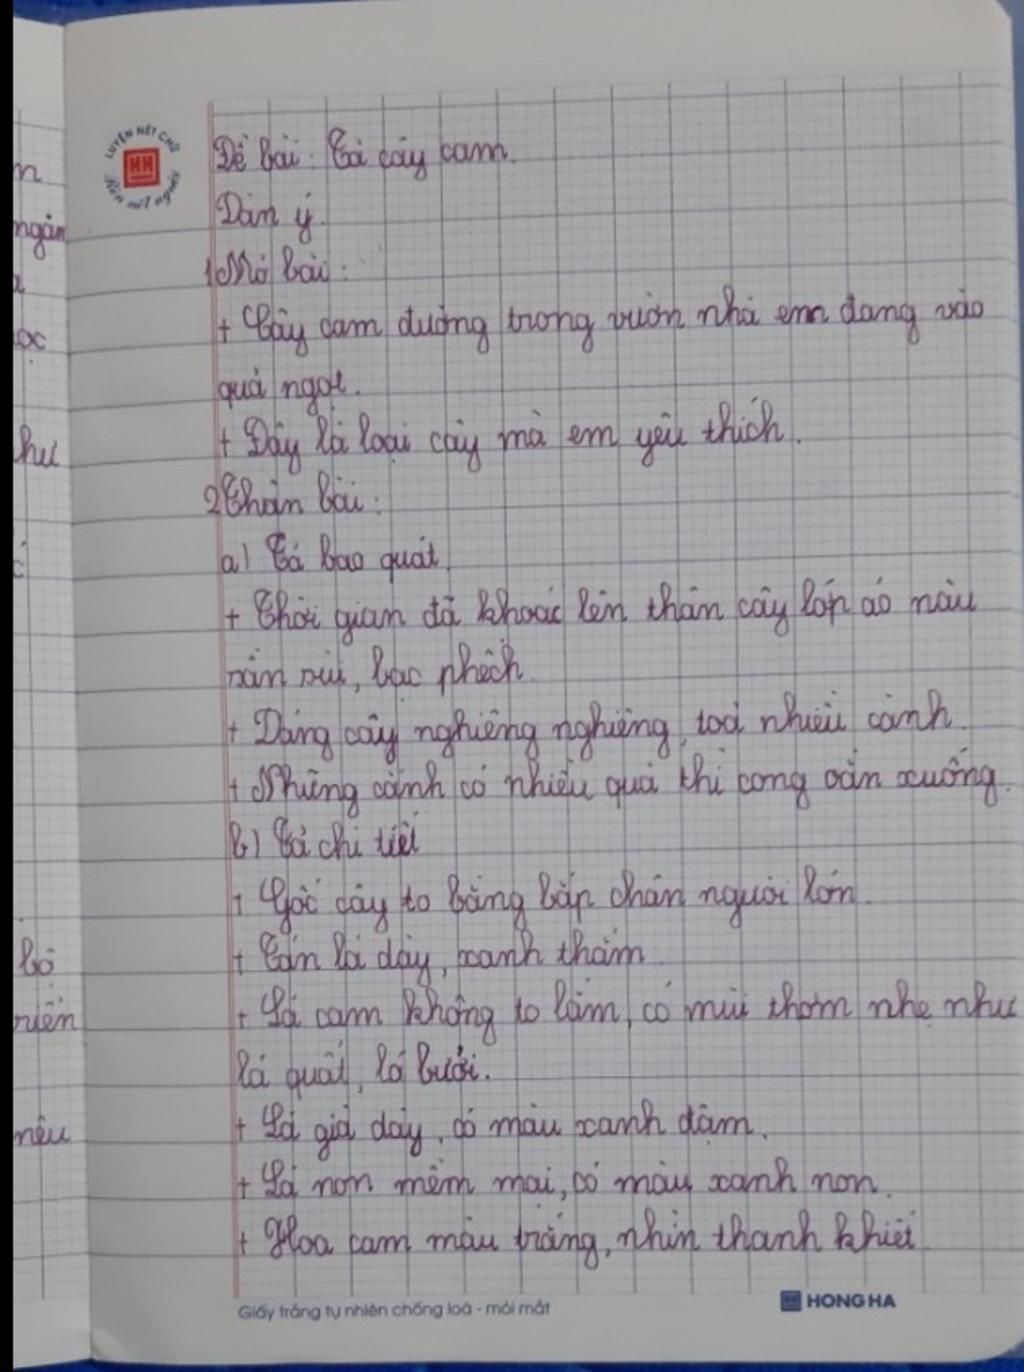 LUYỆN NÉT CHỮ
Rèn nết người
Đề bài: Tả cây cam.
Dàn ý.
1 Mở bài:
+ Cây cam đường trong vườn nhà em đang vào
quả ngọt.
+ Đây là loại cây mà em yêu thích.
2 Thân bài:
a) Tả bao quát
+ Thời gian đã khoác lên thân cây lớp áo nâu
sần sùi, bạc phếch.
+ Dáng cây nghiêng nghiêng, toả nhiều cành.
+ Những cành có nhiều quả thì cong oằn xuống.
b) Tả chi tiết
+ Gốc cây to bằng bắp chân người lớn.
+ Tán lá dày, xanh thẫm.
+ Lá cam không to lắm, có mùi thơm nhẹ như
lá quất, lá bưởi.
+ Lá già dày, có màu xanh đậm.
+ Lá non mềm mại, có màu xanh non.
+ Hoa cam màu trắng, nhìn thanh khiết
Giấy trắng tự nhiên chống loá - mỏi mắt
HONG HA
ngắn
bỏ
nêu